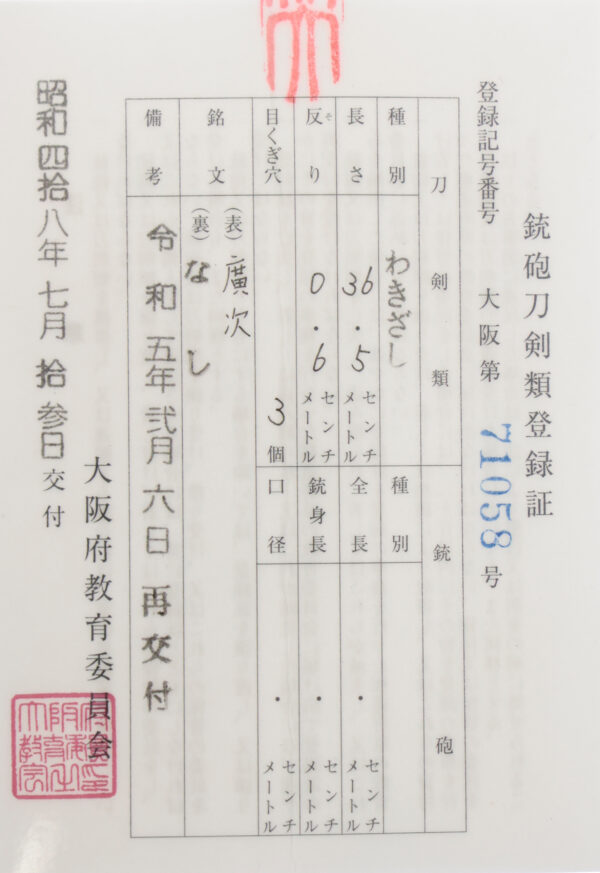 銃砲刀剣類登録証
登録記号番号 大阪第 71058 号
刀剣類 銃砲
種別 わきざし 種別
長さ 36.5 センチメートル 全長 ・ センチメートル
反り そ 0.6 センチメートル 銃身長 ・ センチメートル
目くぎ穴 3 個 口径 ・ センチメートル
銘文 (表) 廣次
(裏) なし
備考 令和五年弐月六日再交付
大阪府教育委員会
昭和四拾八年七月拾参日交付